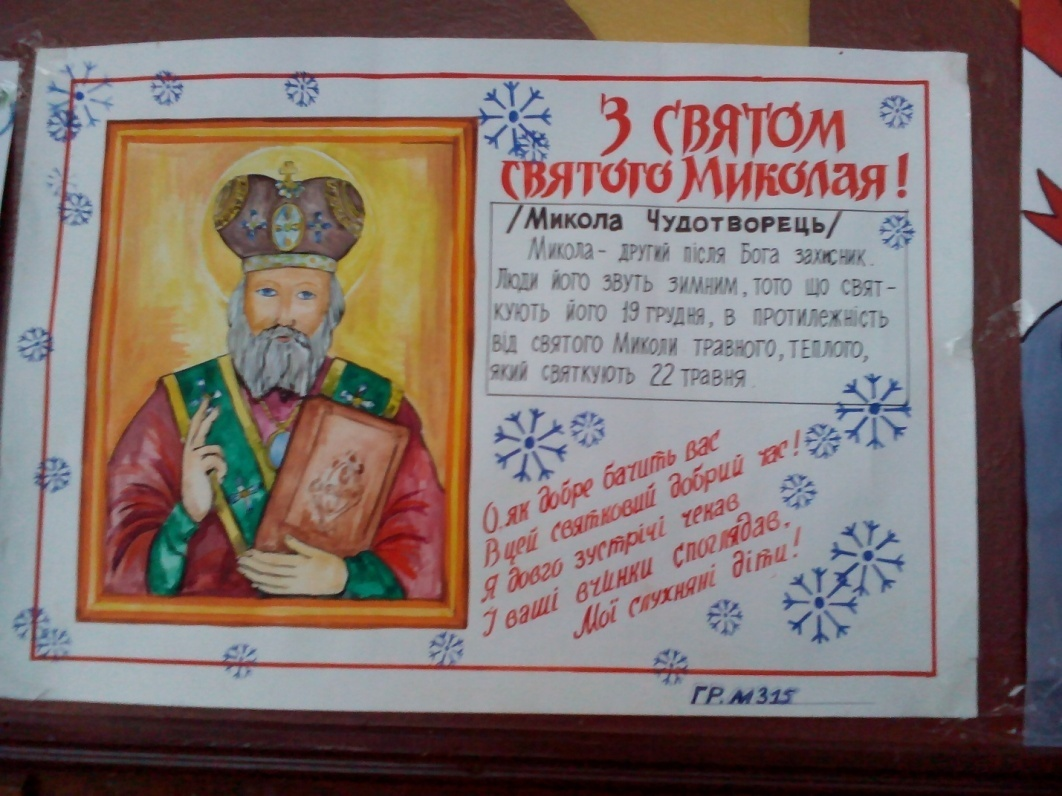 З СВЯТОМ
СВЯТОГО МИКОЛАЯ!
/МИКОЛА ЧУДОТВОРЕЦЬ/
МИКОЛА- ДРУГИЙ ПІСЛЯ БОГА ЗАХИСНИК.
ЛЮДИ ЙОГО ЗВУТЬ ЗИМНИМ, ТОТО ЩО СВЯТ-
КУЮТЬ ЙОГО 19 ГРУДНЯ, В ПРОТИЛЕЖНІСТЬ
ВІД СВЯТОГО МИКОЛИ ТРАВНОГО, ТЕПЛОГО,
ЯКИЙ СВЯТКУЮТЬ 22 ТРАВНЯ.
О, як добре бачить вас
В цей святковий добрий час!
Я довго зустрічі чекав
І ваші вчинки споглядав,
Мої слухняні діти!
ГР. М315